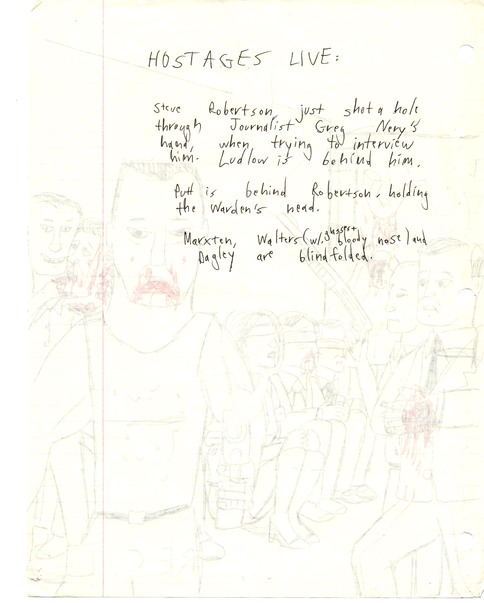 HOSTAGES LIVE:
Steve Robertson, just shot a hole
through Journalist Greg Nery's
hand, when trying to interview
him. Ludlow is behind him.
Putt is behind Robertson, holding
the Warden's head.
Marxten, Walters (w/ glasses + bloody nose) and
Dagley are blindfolded.